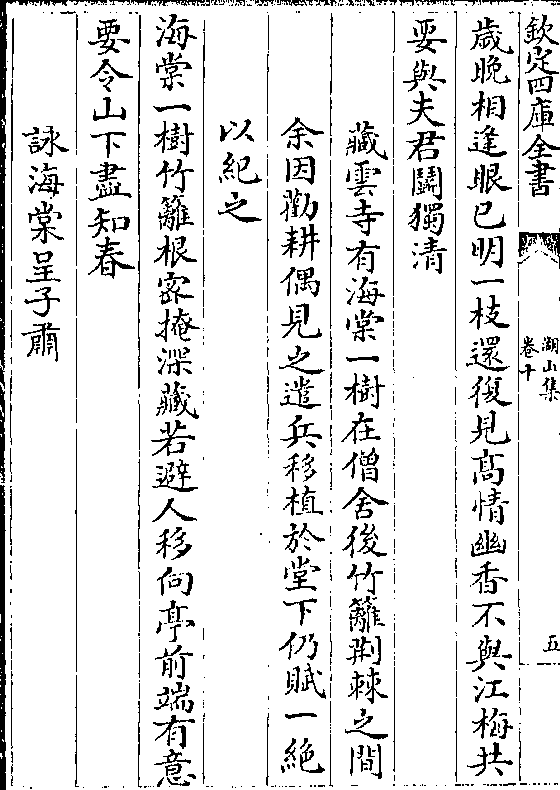 欽定四庫全書
湖山集
卷十
五
歲晚相逢眼已明一枝還復見髙情幽香不與江梅共
要與夫君鬭獨清
藏雲寺有海棠一樹在僧舍後竹籬荆棘之間
余因勸耕偶見之遣兵移植於堂下仍賦一絶
以紀之
海棠一樹竹籬根宻掩深藏若避人移向亭前端有意
要令山下盡知春
詠海棠呈子肅